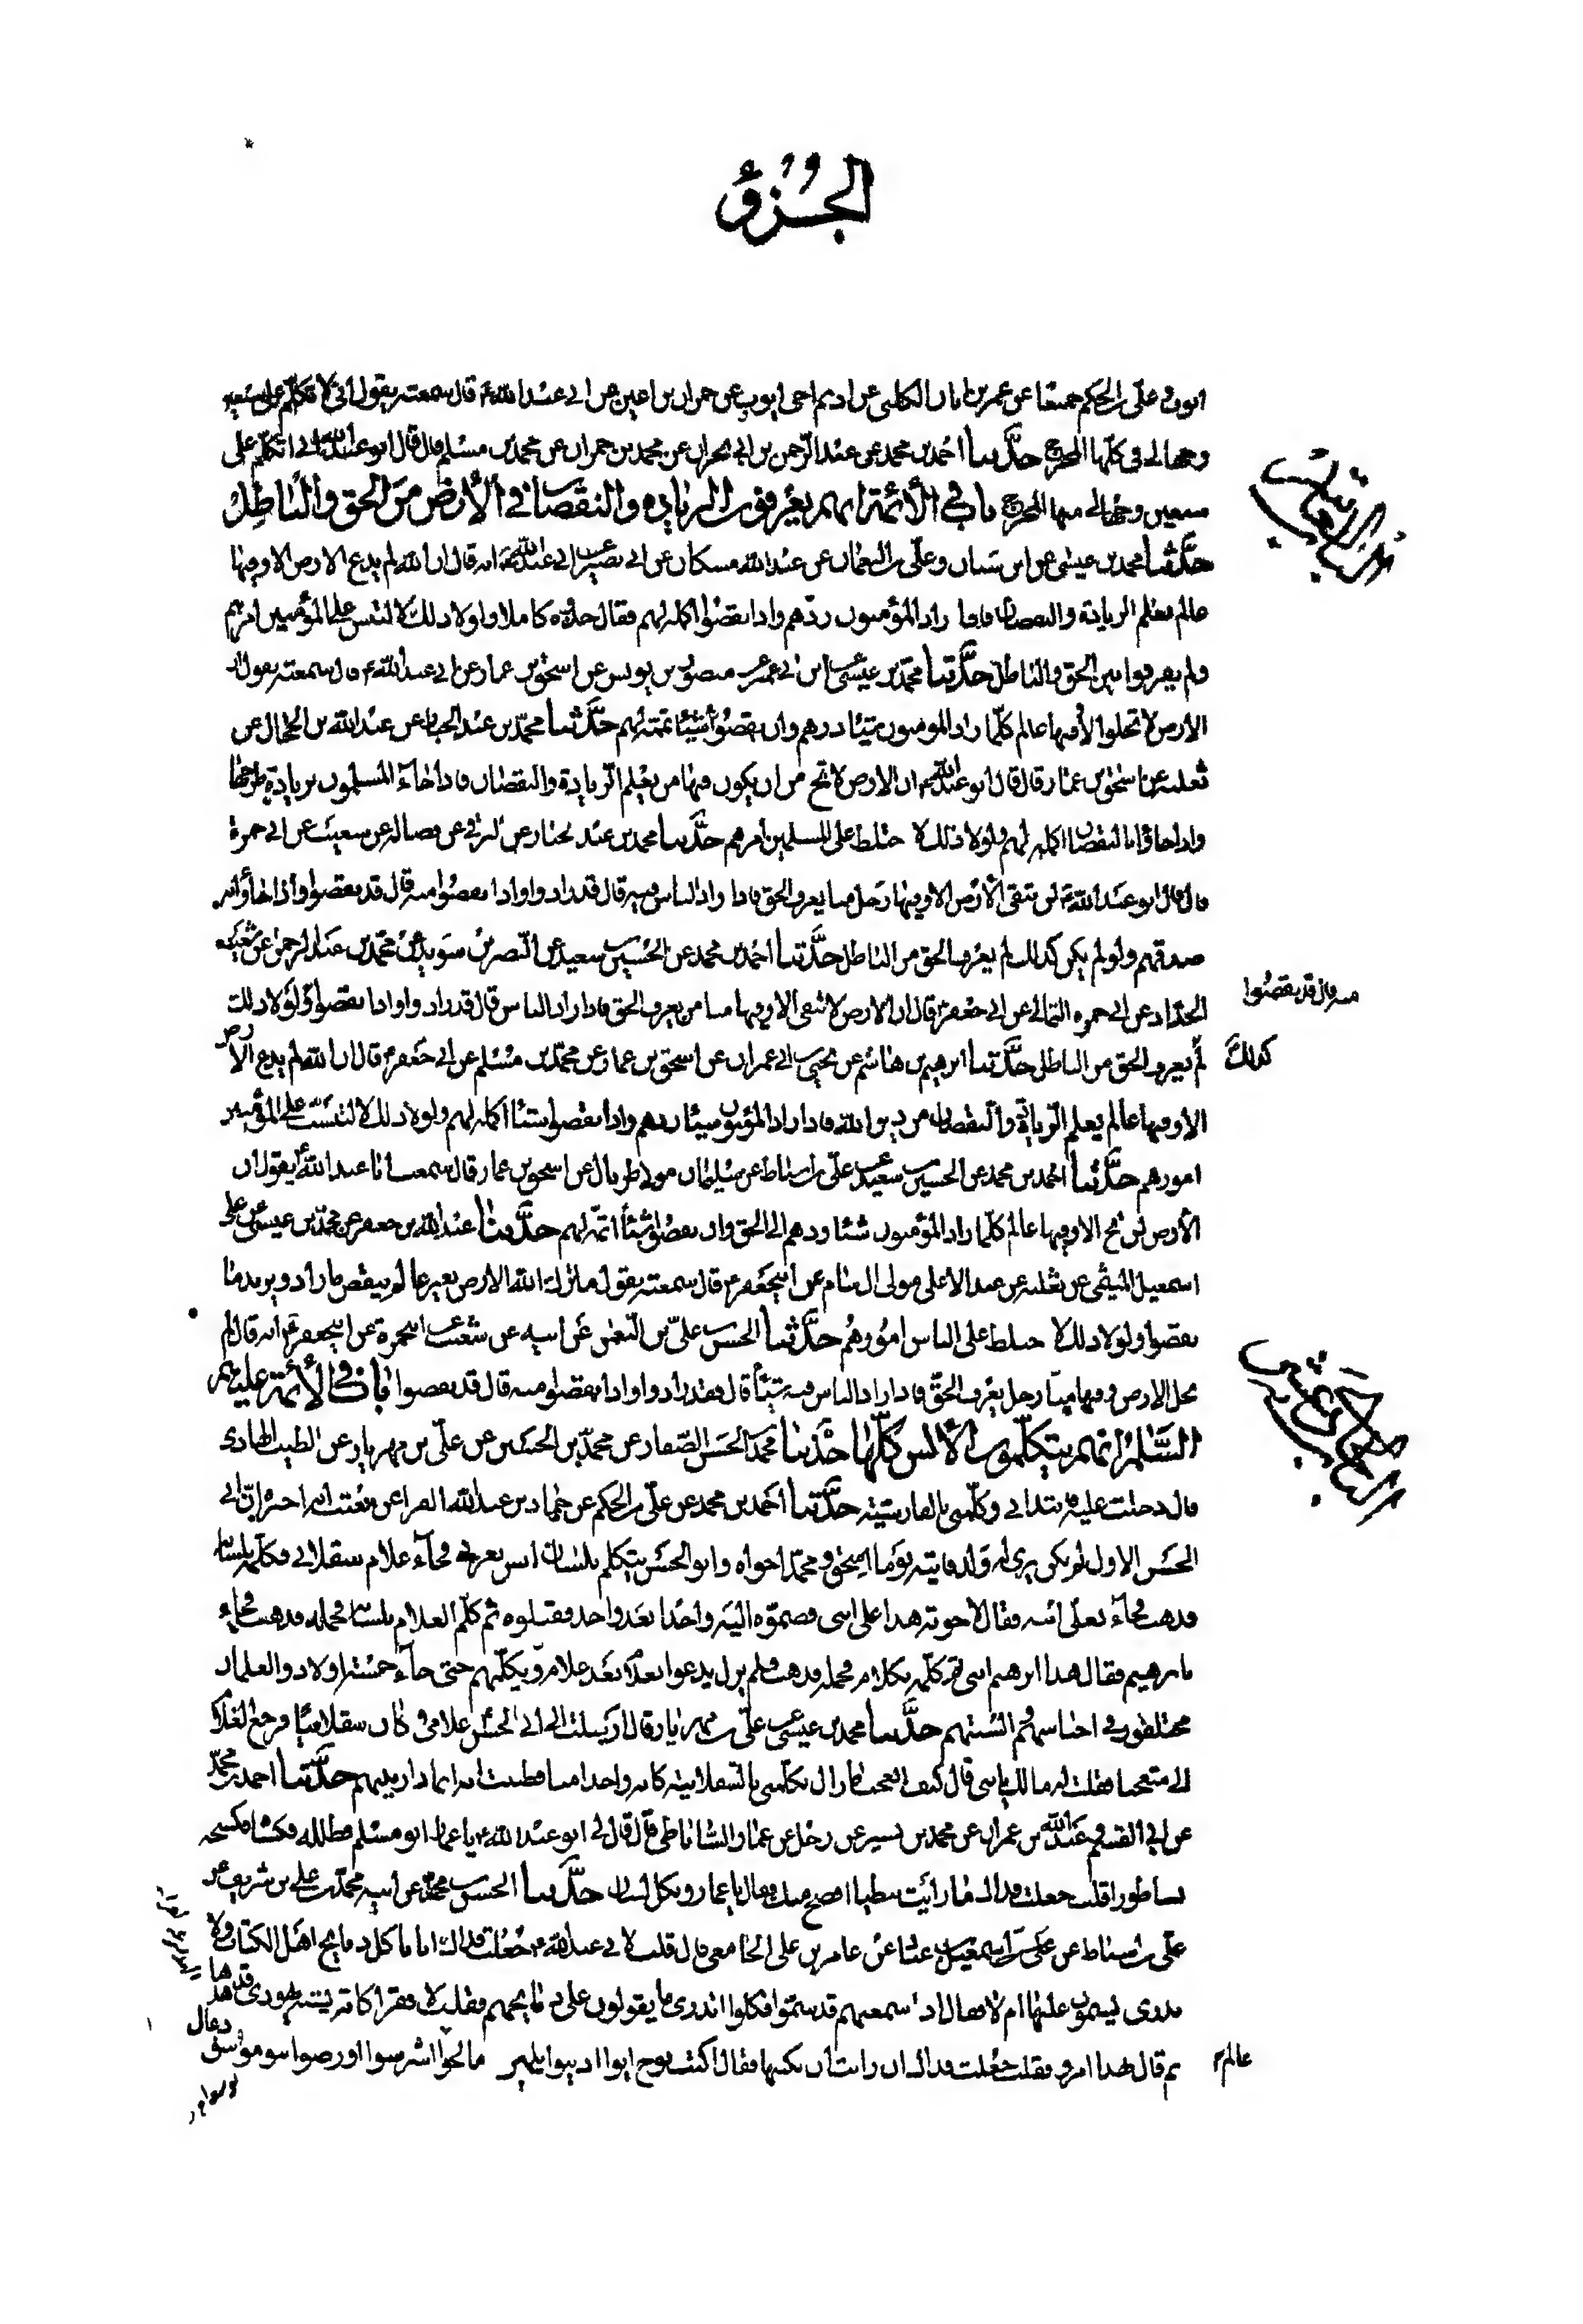 الجزؤ
ايوب و علي بن الحكم جميعا عن عمر بن ابان الكلبي عن اديم اخي ايوب عن حمران بن اعين عن ابي عبد الله ع قال سمعته يقول اني لا تكلم على سبعين
وجها لي في كلها المخرج حدثنا احمد بن محمد عن عبد الرحمن بن ابي نجران عن محمد بن حمران عن محمد بن مسلم قال قال ابو عبد الله اني اتكلم على
سبعين وجها لي منها المخرج باب في الأئمة انهم يعرفون الزيادة والنقصان في الأرض من الحق والباطل
حدثنا محمد بن عيسى عن ابن سنان وعلي بن النعمان عن عبد الله مسكان عن ابي بصير عن ابي عبد الله انه قال ان الله لم يدع الارض الا وفيها
عالم يعلم الزيادة والنقصان فاذا زاد المؤمنون ردهم واذا نقصوا اكمله لهم فقال خذوه كاملا ولولا ذلك لالتبس على المؤمنين امرهم
ولم يفرقوا بين الحق والباطل حدثنا محمد بن عيسى عن ابن ابي عمير عن منصور بن يونس عن اسحق بن عمار عن ابي عبد الله ع قال سمعته يقول ان
الارض لا تخلوا الا وفيها عالم كلما زاد المومنون شيئا ردهم وان نقصوا شيئا تممه لهم حدثنا محمد بن عبد الجبار عن عبد الله بن الحجال عن
ثعلبة عن اسحق بن عمار قال قال ابو عبد الله ع ان الارض لا تخ من ان يكون فيها من يعلم الزيادة والنقصان فاذا جاء المسلمون بزيادة طرحها
واذا جاؤا بالنقصان اكمله لهم ولولا ذلك لا ختلط على المسلمين امرهم حدثنا محمد بن عبد لجبار عن البرقي عن فضالة عن شعيب عن ابي حمزة
قال قال ابو عبد الله ع لن تبقى الأرض الا وفيها رجل منا يعرف الحق فاذا زاد الناس فيه قال قد زادوا واذا نقصوا منه قال قد نقصوا واذا جاؤا به
صدقهم ولو لم يكن كذلك لم يعرف الحق من الباطل حدثنا احمد بن محمد عن الحسين بن سعيد عن النضر بن سويد عن محمد بن عبد الرحمن عن شعيب
الحداد عن ابي حمزه الثمالي عن ابي جعفر ع قال ان الارض لا تبقى الا وفيها منا من يعرف الحق فاذا زاد الناس قال قد زادوا واذا نقصوا ولولا ذلك
منه قال قد نقصوا
لم يعرف الحق من الباطل حدثنا ابرهيم بن هاشم عن يحيى بن ابي عمران عن اسحق بن عمار عن محمد بن مسلم عن ابي جعفر ع قال ان الله لم يدع الارض
كذلك
الا وفيها عالم يعلم الزيادة والنقصان من دين الله فاذا زاد المؤمنون شيئا ردهم واذا نقصوا شيئا اكمله لهم ولولا ذلك لالتبست على المؤمنين
امورهم حدثنا احمد بن محمد عن الحسين بن سعيد عن علي بن اسباط عن سليمان مولى طربال عن اسحق بن عمار قال سمعت ابا عبد الله ع يقول ان
الأرض لن تخ الا وفيها عالم كلما زاد المؤمنون شيئا ردهم الى الحق وان نقصوا شيئا اتمه لهم حدثنا عبد الله بن جعفر عن محمد بن عيسى عن علي
اسمعيل الميثمي عن ثعلبه عن عبد الاعلى مولى ال سام عن ابيجعفر ع قال سمعته يقول ما ترك الله الارض بغير عالم ينقص ما زادو ويزيد ما
نقصوا ولولا ذلك لا ختلط على الناس امورهم حدثنا الحسن بن علي بن النعمن عن ابيه عن شعيب عن ابيحمزة عن ابيجعفر ع انه قال لم
تخل الارض وفيها منا رجل يعرف الحق فاذا زاد الناس فيه شيئا قال قد زادوا واذا نقصوا منه قال قد نقصوا باب في الأئمة عليهم
السلم انهم يتكلمون الألسن كلها حدثنا محمد الحسن الصفار عن محمد بن الحسين عن علي بن مهزيار عن الطيب الهادى
قال دخلت عليه فابتداني وكلمني بالفارسية حدثنا احمد بن محمد عن علي بن الحكم عن حماد بن عبد الله الفرا عن معتب انه اخبره ان ابى
الحسن الاول لم يكن يرى له ولد فاتيه يوما اسحق ومحمد اخواه وابو الحسن يتكلم بلسان ليس بعربى فجآء غلام سقلابى فكلمه بلسانه
فذهب فجآء بعلي ابنه فقال لاخوته هذا على ابنى فضموه اليه واحدا بعد واحد فقبلوه ثم كلم الغلام بلسانه فحمله فذهب فجاء
بابرهيم فقال هذا ابرهيم ابنى ثم كلمه بكلام فحمله فذهب فلم يزل يدعوا بغلام بعد غلام ويكلمهم حتى جاء خمسة اولاد والغلمان
مختلفون في اجناسهم والسنتهم حدثنا محمد بن عيسى عن علي بن مهزيار قال ارسلت الى ابي الحسن غلامى وكان سقلابيا فرجع الغلام
الى متعجبا فقلت له مالك يابنى قال كيف لا اتعجب مازال يكلمنى بالسقلابية كانه واحد منا فظننت انه انما دار بينهم حدثنا احمد بن محمد
عن ابي القسم وعبد الله بن عمران عن محمد بن بشير عن رجل عن عمار الساباطى قال قال لى ابو عبد الله ع يا عمار ابو مسلم فظلله فكسا فكسحه
بساطورا قلت جعلت فداك ما رايت نبطيا افصح منك فقال يا عمار وبكل لسان حدثنا الحسن بن محمد عن ابيه محمد بن علي بن شريف عن
علي بن اسباط عن علي بن اسمعيل عن عامر بن على الجامعى قال قلت لابي عبد الله ع جعلت فداك انا ناكل ذبايح اهل الكتاب ولا
ندرى يسمون عليها ام لا فقال اذا سمعتهم قد سموا فكلوا اتدرى ما يقولون على ذبايحهم فقلت لا فقرا كانه يشبه يهودى قد هذها
ثم قال بهذا امروا فقلت جعلت فداك ان رايت ان نكتبها فقال اكتب نوح ايوا ادينوا يلهيز مالحوا اشرسوا اورضوا بنو
عالم